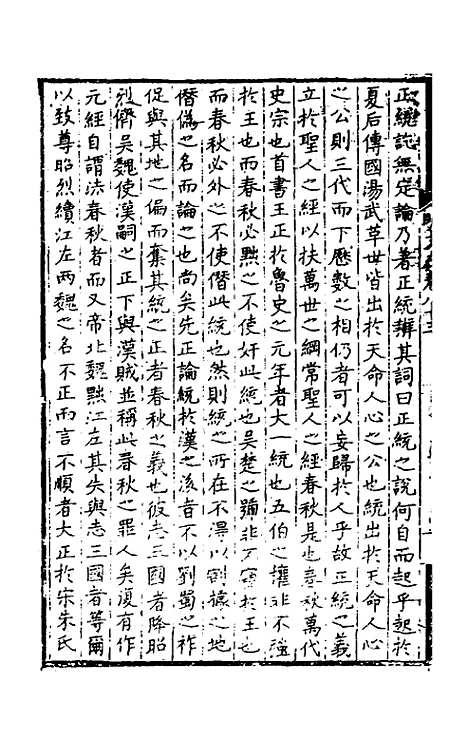 正統訖無定論乃著正統辨其詞曰正統之說何自而起乎起於
夏后傳國湯武革世皆出於天命人心之公也統出於天命人心
之公則三代而下歷數之相仍者可以妄歸於人乎故正統之義
立於聖人之經以扶萬世之綱常聖人之經春秋是也春秋萬代
史宗也首書王正於魯史之元年者大一統也五伯之權非不強
於王也而春秋必黜之不使奸此統也吳楚之號非不竊於王也
而春秋必外之不使僭此統也然則統之所在不得以割據之地
僭偽之名而論之也尚矣先正論統於漢之後者不以劉蜀之祚
促與其地之偏而奪其統之正者春秋之義也彼志三國者降昭
烈儕吳魏使漢嗣之正下與漢賊並稱此春秋之罪人矣復有作
元經自謂法春秋者而又帝北魏黜江左其失與志三國者等爾
以致尊昭烈續江左兩魏之名不正而言不順者大正於宋朱氏